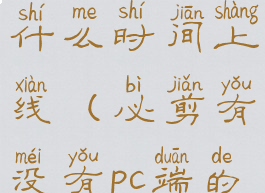 shí me shí jiān shàng
什么时间上
xiàn bì jiǎn yǒu
线（必剪有
méi yǒu duān de
没有PC端的